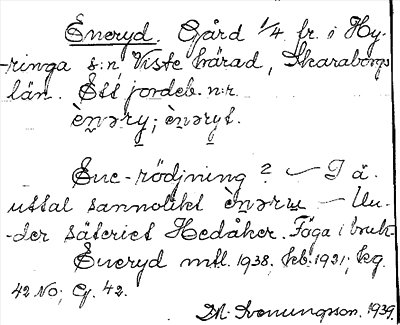 Eneryd. Gård 1/4 fr. i Hy-
-ringa s:n, Viste härad, Skaraborgs
län. Ett jordeb. n:r.
èn̥əry; èn̥əryt.
Ene-rödjning? — I ä.
uttal sannolikt èn̥əru — Un-
-der säteriet Hedåker. Föga i bruk.
Eneryd mtl. 1938, kb. 1921; kg.
42 No; G. 42.
M. Svenungsson. 1939.